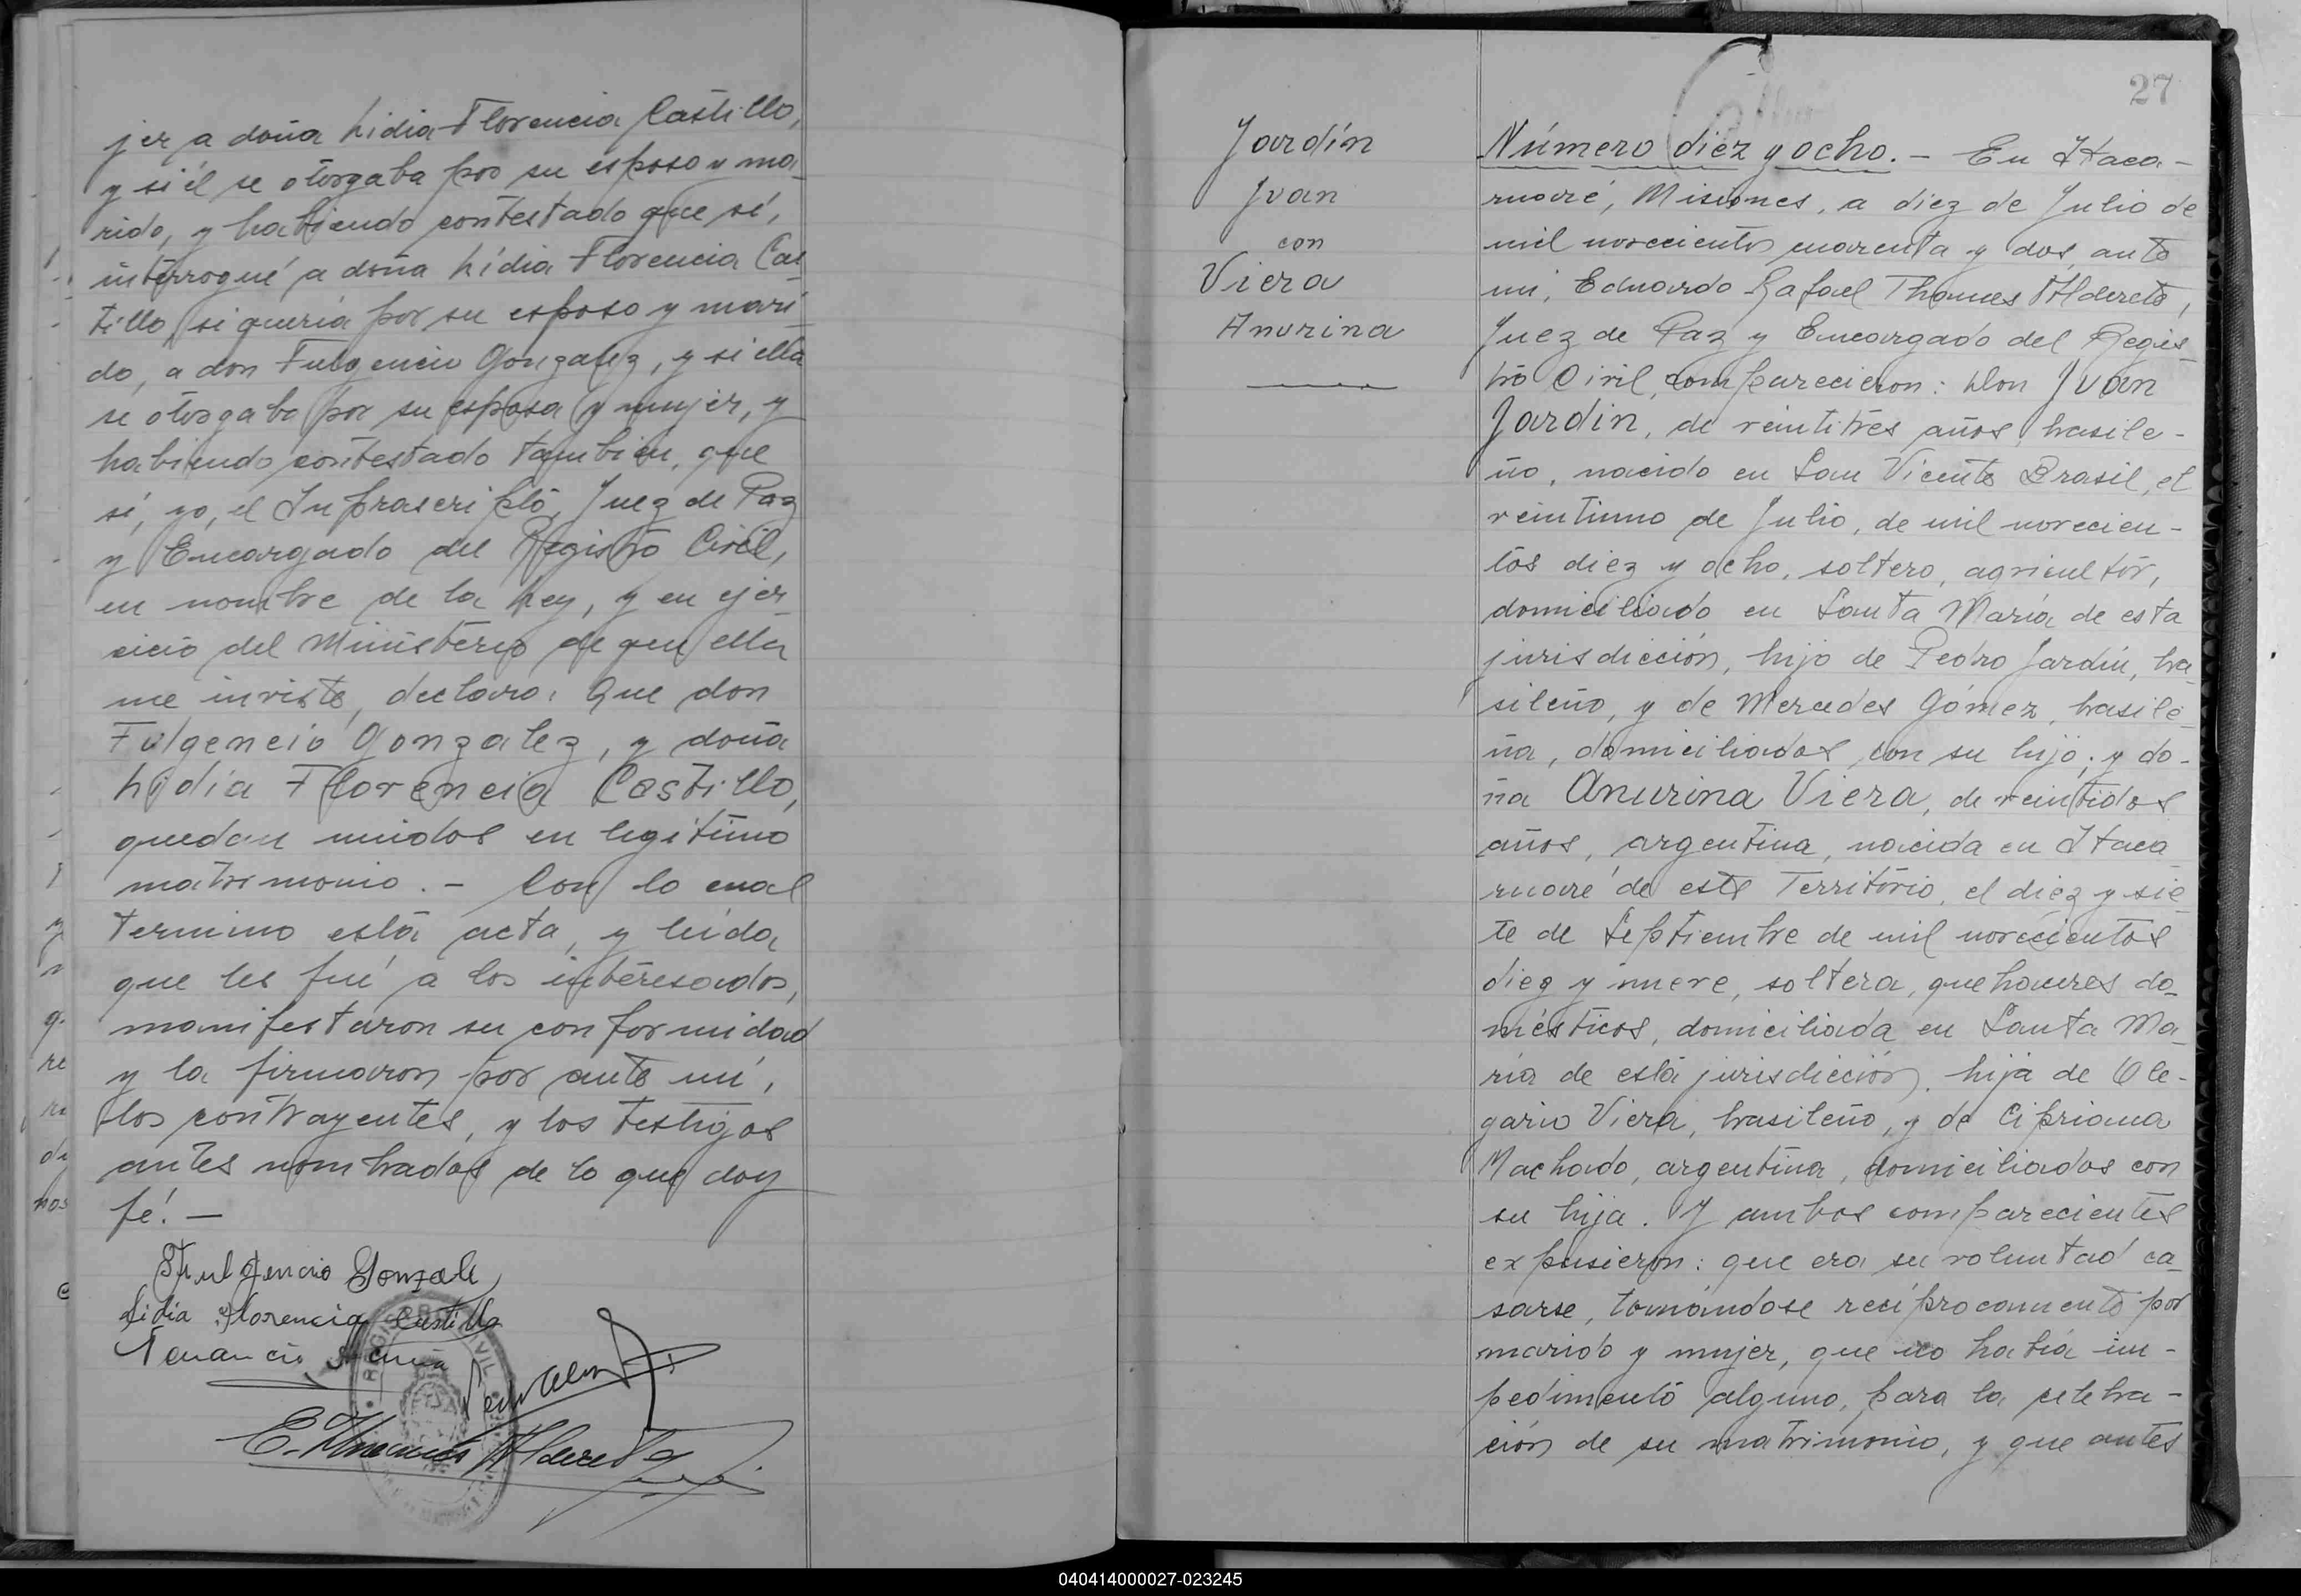 jer a doña Lidia Florencia Castillo,
y si él se otorgaba por su esposo y ma-
rido, y habiendo contestado que sí,
interrogué a doña Lidia Florencia Cas-
tillo, si quería por su esposo y mari-
do, a don Fulgencio Gonzalez, y si ella
se otorgaba por su esposa y mujer, y
habiendo contestado tambien, que
sí, yo, el Infrascripto, Juez de Paz
y Encargado del Registro Civil,
en nombre de la Ley, y en ejer-
cicio del Ministerio de que ella
me inviste, declaro: Que don
Fulgencio Gonzalez, y doña
Lidia Florencia Castillo,
quedan unidos en legitimo
matrimonio. - Con lo cual
termino esta acta, y leida
que les fué a los interesados,
manifestaron su conformidad
y la firmaron por ante mi,
los contrayentes, y los testigos
antes nombrados de lo que doy
fé! -
Fulgencio Gonzale
Lidia Florencia Castillo
Venancio Acuña
E. Thames Alderete
REGISTRO CIVIL
27
Jardín
Ivan
con
Viera
Anurina
Número diez y ocho. - En Itaca-
ruaré, Misiones, a diez de Julio de
mil novecientos cuarenta y dos, ante
mi, Eduardo Rafael Thames Alderete,
Juez de Paz y Encargado del Regis-
tro Civil, comparecieron: Don Ivan
Jardin, de veintitrés años, brasile-
ño, nacido en San Vicente Brasil, el
veintiuno de Julio, de mil novecien-
tos diez y ocho, soltero, agricultor,
domiciliado en Santa María de esta
jurisdicción, hijo de Pedro Jardín, bra-
sileño, y de Mercedes Gómez, brasile-
ña, domiciliados con su hijo; y do-
ña Anurina Viera, de veintidos
años, argentina, nacida en Itaca-
ruaré de este Territorio, el diez y sie-
te de Septiembre de mil novecientos
diez y nueve, soltera, quehaceres do-
mésticos, domiciliada en Santa Ma-
ría de esta jurisdicción, hija de Ole-
gario Viera, brasileño, y de Cipriana
Machado, argentina, domiciliados con
su hija. Y ambos comparecientes
expusieron: que era su voluntad ca-
sarse, tomándose recíprocamente por
marido y mujer, que no había im-
pedimento alguno, para la celebra-
ción de su matrimonio, y que antes
040414000027-023245